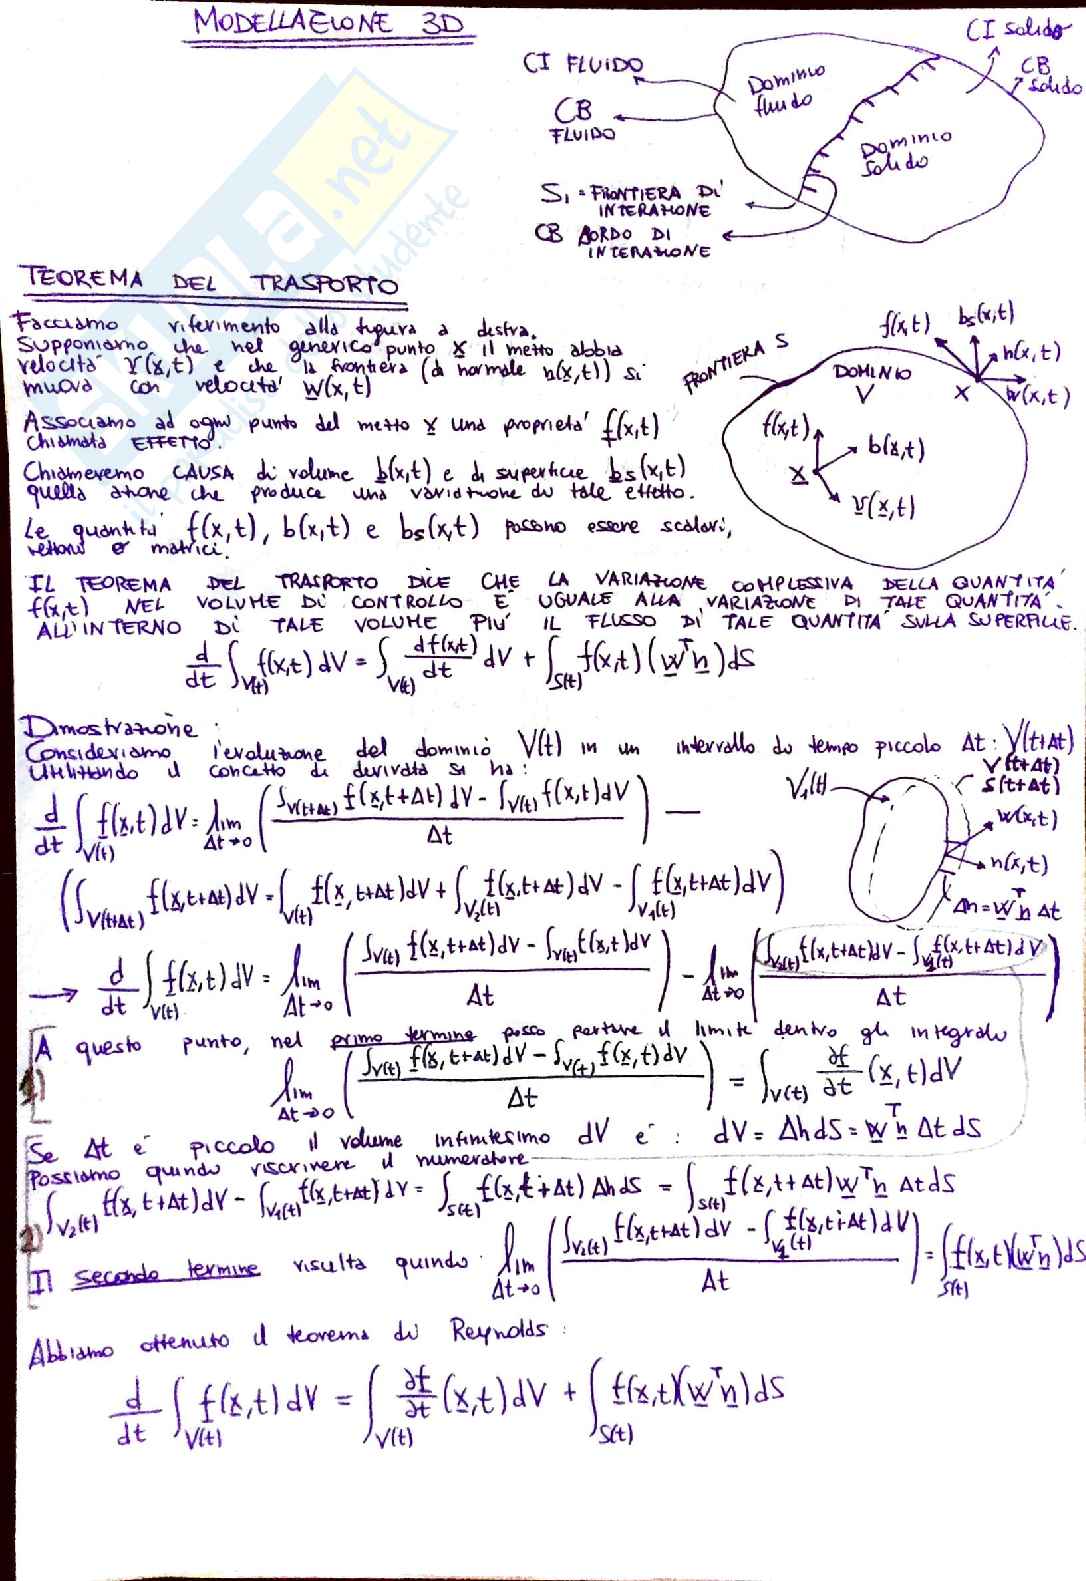 MODELLAZIONE 3D
CI FLUIDO
CB
FLUIDO
Dominio
fluido
Dominio
Solido
CI Solido
CB
Solido
S₁ = FRONTIERA DI
INTERAZIONE
CB BORDO DI
INTERAZIONE
TEOREMA DEL TRASPORTO
Facciamo riferimento alla figura a destra.
Supponiamo che nel generico punto x il mezzo abbia
velocità v(x,t) e che la frontiera (di normale n(x,t)) si
muova con velocità w(x,t)
Associamo ad ogni punto del mezzo x una proprietà f(x,t)
chiamata EFFETTO.
Chiameremo CAUSA di volume b(x,t) e di superficie bs(x,t)
quella azione che produce una variazione di tale effetto.
Le quantità f(x,t), b(x,t) e bs(x,t) possono essere scalari,
vettori o matrici.
FRONTIERA S
DOMINIO
V
f(x,t)
bs(x,t)
n(x,t)
w(x,t)
x
f(x,t)
b(x,t)
x
v(x,t)
IL TEOREMA DEL TRASPORTO DICE CHE LA VARIAZIONE COMPLESSIVA DELLA QUANTITA'
f(x,t) NEL VOLUME DI CONTROLLO E' UGUALE ALLA VARIAZIONE DI TALE QUANTITA'
ALL'INTERNO DI TALE VOLUME PIU' IL FLUSSO DI TALE QUANTITA' SULLA SUPERFICIE.
d/dt ∫V(t) f(x,t) dV = ∫V(t) df(x,t)/dt dV + ∫S(t) f(x,t) (wᵀn) dS
Dimostrazione:
Consideriamo l'evoluzione del dominio V(t) in un intervallo di tempo piccolo Δt: V(t+Δt)
Utilizzando il concetto di derivata si ha:
d/dt ∫V(t) f(x,t) dV = lim Δt→0 ( (∫V(t+Δt) f(x,t+Δt) dV - ∫V(t) f(x,t) dV) / Δt ) —
V₁(t)
V(t+Δt)
S(t+Δt)
w(x,t)
n(x,t)
Δh = wᵀn Δt
( ∫V(t+Δt) f(x,t+Δt) dV = ∫V(t) f(x,t+Δt) dV + ∫V₂(t) f(x,t+Δt) dV - ∫V₁(t) f(x,t+Δt) dV )
→ d/dt ∫V(t) f(x,t) dV = lim Δt→0 ( (∫V(t) f(x,t+Δt) dV - ∫V(t) f(x,t) dV) / Δt ) - lim Δt→0 ( (∫V₂(t) f(x,t+Δt) dV - ∫V₁(t) f(x,t+Δt) dV) / Δt )
A questo punto, nel primo termine posso portare il limite dentro gli integrali
1)
lim Δt→0 ( (∫V(t) f(x,t+Δt) dV - ∫V(t) f(x,t) dV) / Δt ) = ∫V(t) ∂f/∂t (x,t) dV
Se Δt è piccolo il volume infinitesimo dV è: dV = Δh dS = wᵀn Δt dS
Possiamo quindi riscrivere il numeratore
∫V₂(t) f(x,t+Δt) dV - ∫V₁(t) f(x,t+Δt) dV = ∫S(t) f(x,t+Δt) Δh dS = ∫S(t) f(x,t+Δt) wᵀn Δt dS
2)
Il secondo termine risulta quindi: lim Δt→0 ( (∫V₂(t) f(x,t+Δt) dV - ∫V₁(t) f(x,t+Δt) dV) / Δt ) = ∫S(t) f(x,t)(wᵀn) dS
Abbiamo ottenuto il teorema di Reynolds:
d/dt ∫V(t) f(x,t) dV = ∫V(t) ∂f/∂t (x,t) dV + ∫S(t) f(x,t)(wᵀn) dS